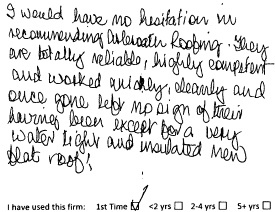 I would have no hesitation in
recommending Roofing. They
are totally reliable, highly competent
and worked quickly, cleanly and
once gone left no sign of their
having been except for a very
water tight and insulated new
flat roof!
I have used this firm: 1st Time ☑ <2 yrs ☐ 2-4 yrs ☐ 5+ yrs ☐